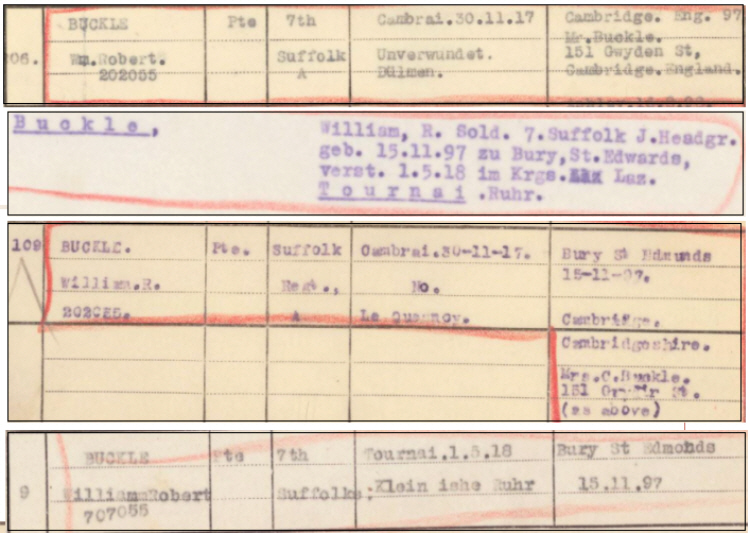 BUCKLE Pte 7th Cambrai.30.11.17 Cambridge. Eng. 97
Mr.Buckle.
06. Wm.Robert. Suffolk Unverwundet. 151 Gwyden St,
202055 A Dülmen. Cambridge.England.
Buckle, William, R. Sold. 7.Suffolk J.Headgr.
geb. 15.11.97 zu Bury,St.Edwards,
verst. 1.5.18 im Krgs. Laz.
Tournai .Ruhr.
109 BUCKLE. Pte. Suffolk Cambrai.30-11-17. Bury St Edmunds
15-11-97.
William.R. Regt., No.
202055. A Le Quesnoy. Cambridge.
Cambridgeshire.
Mrs.C.Buckle.
151 St.
(as above)
BUCKLE Pte 7th Tournai.1.5.18 Bury St Edmonds
9 WilliamRobert Suffolks; Klein Ruhr 15.11.97
707055